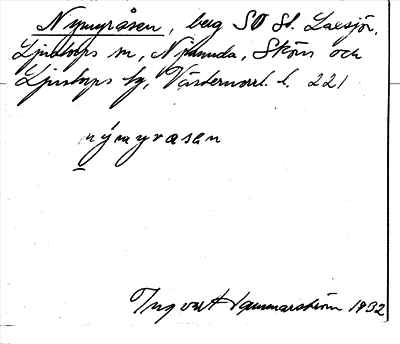 Nymyråsen, berg SO St. Laxsjön,
Ljustorps sn, Njurunda, Sköns och
Ljustorps tg, Västernorrl. l. 221
nýmyrasen
Ingvart Hammarström 1932